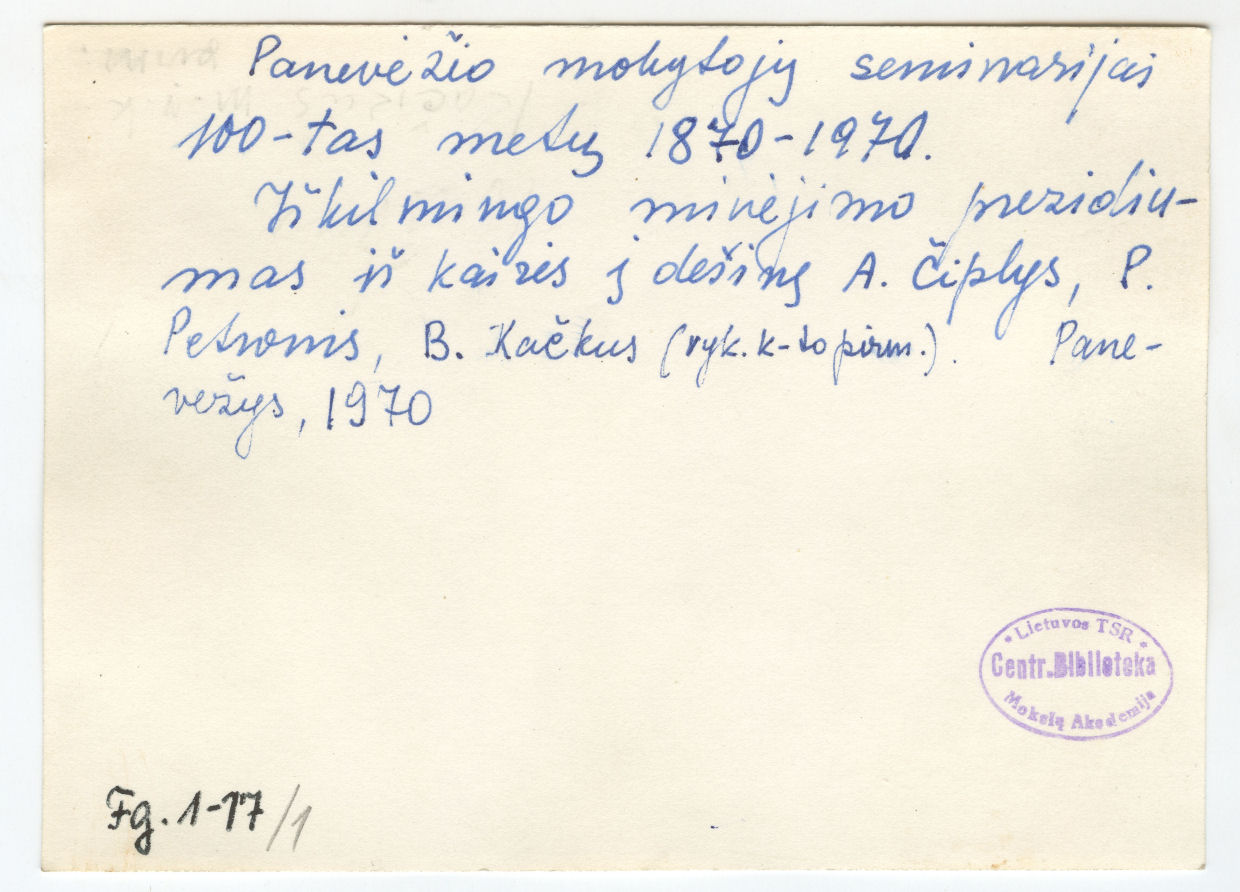 Panevėžio mokytojų seminarijai
100-tas metų 1870-1970.
Iškilmingo minėjimo prezidiu-
mas iš kairės į dešinę A. Čiplys, P.
Petronis, B. Kačkus (vyk. k-to pirm.). Pane-
vėžys, 1970
Lietuvos TSR
Centr. Biblioteka
Mokslų Akademija
Fg. 1-17/1